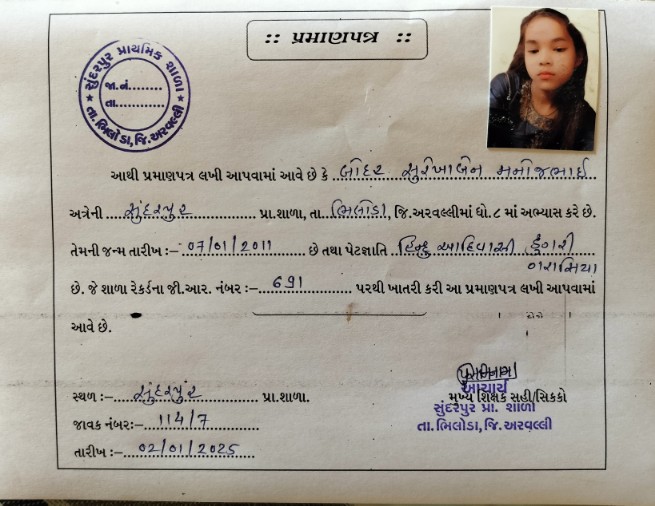 :: પ્રમાણપત્ર ::
સુંદરપુર પ્રાથમિક શાળા
જા.નં.........
તા............
★ તા.ભિલોડા, જિ.અરવલ્લી ★
આથી પ્રમાણપત્ર લખી આપવામાં આવે છે કે બોદર સુરેખાબેન મનોજભાઈ
અત્રેની સુંદરપુર પ્રા.શાળા, તા. ભિલોડા, જિ.અરવલ્લીમાં ધો.૮ માં અભ્યાસ કરે છે.
તેમની જન્મ તારીખ :- 07/01/2011 છે તથા પેટાજ્ઞાતિ હિન્દુ આદિવાસી ડુંગરી
ગરાસિયા
છે. જે શાળા રેકર્ડના જી.આર. નંબર :- 691 પરથી ખાતરી કરી આ પ્રમાણપત્ર લખી આપવામાં
આવે છે.
આચાર્ય
સ્થળ :- સુંદરપુર પ્રા.શાળા.
મુખ્ય શિક્ષક સહી/સિક્કો
સુંદરપુર પ્રા. શાળા
જાવક નંબર:- 114/7
તા.ભિલોડા, જિ.અરવલ્લી
તારીખ :- 02/01/2025